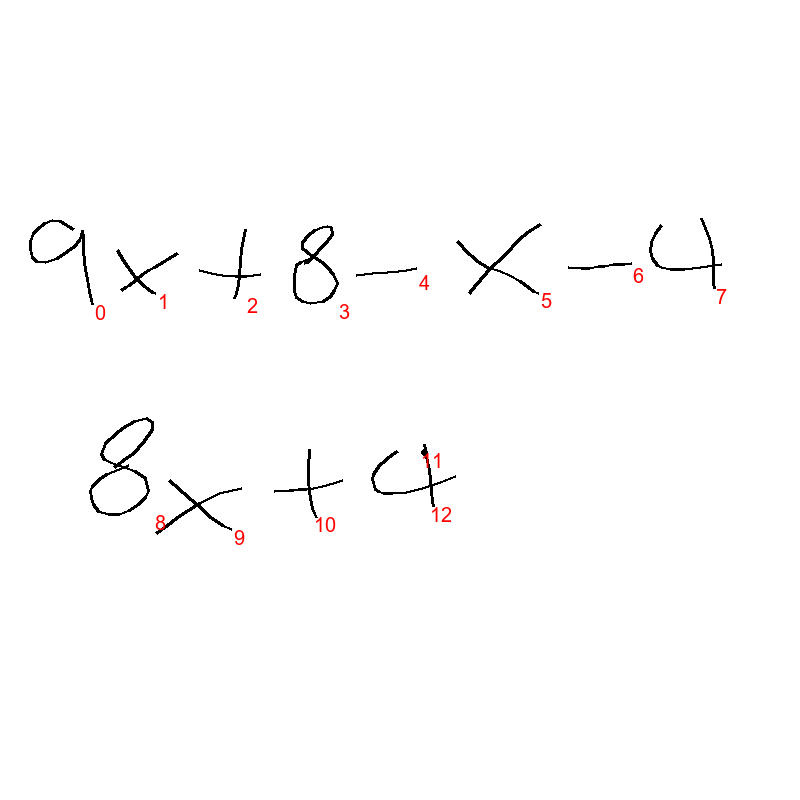 9x + 8 - x - 4
0 1 2 3 4 5 6 7
8x + 4
8 9 10 11 12